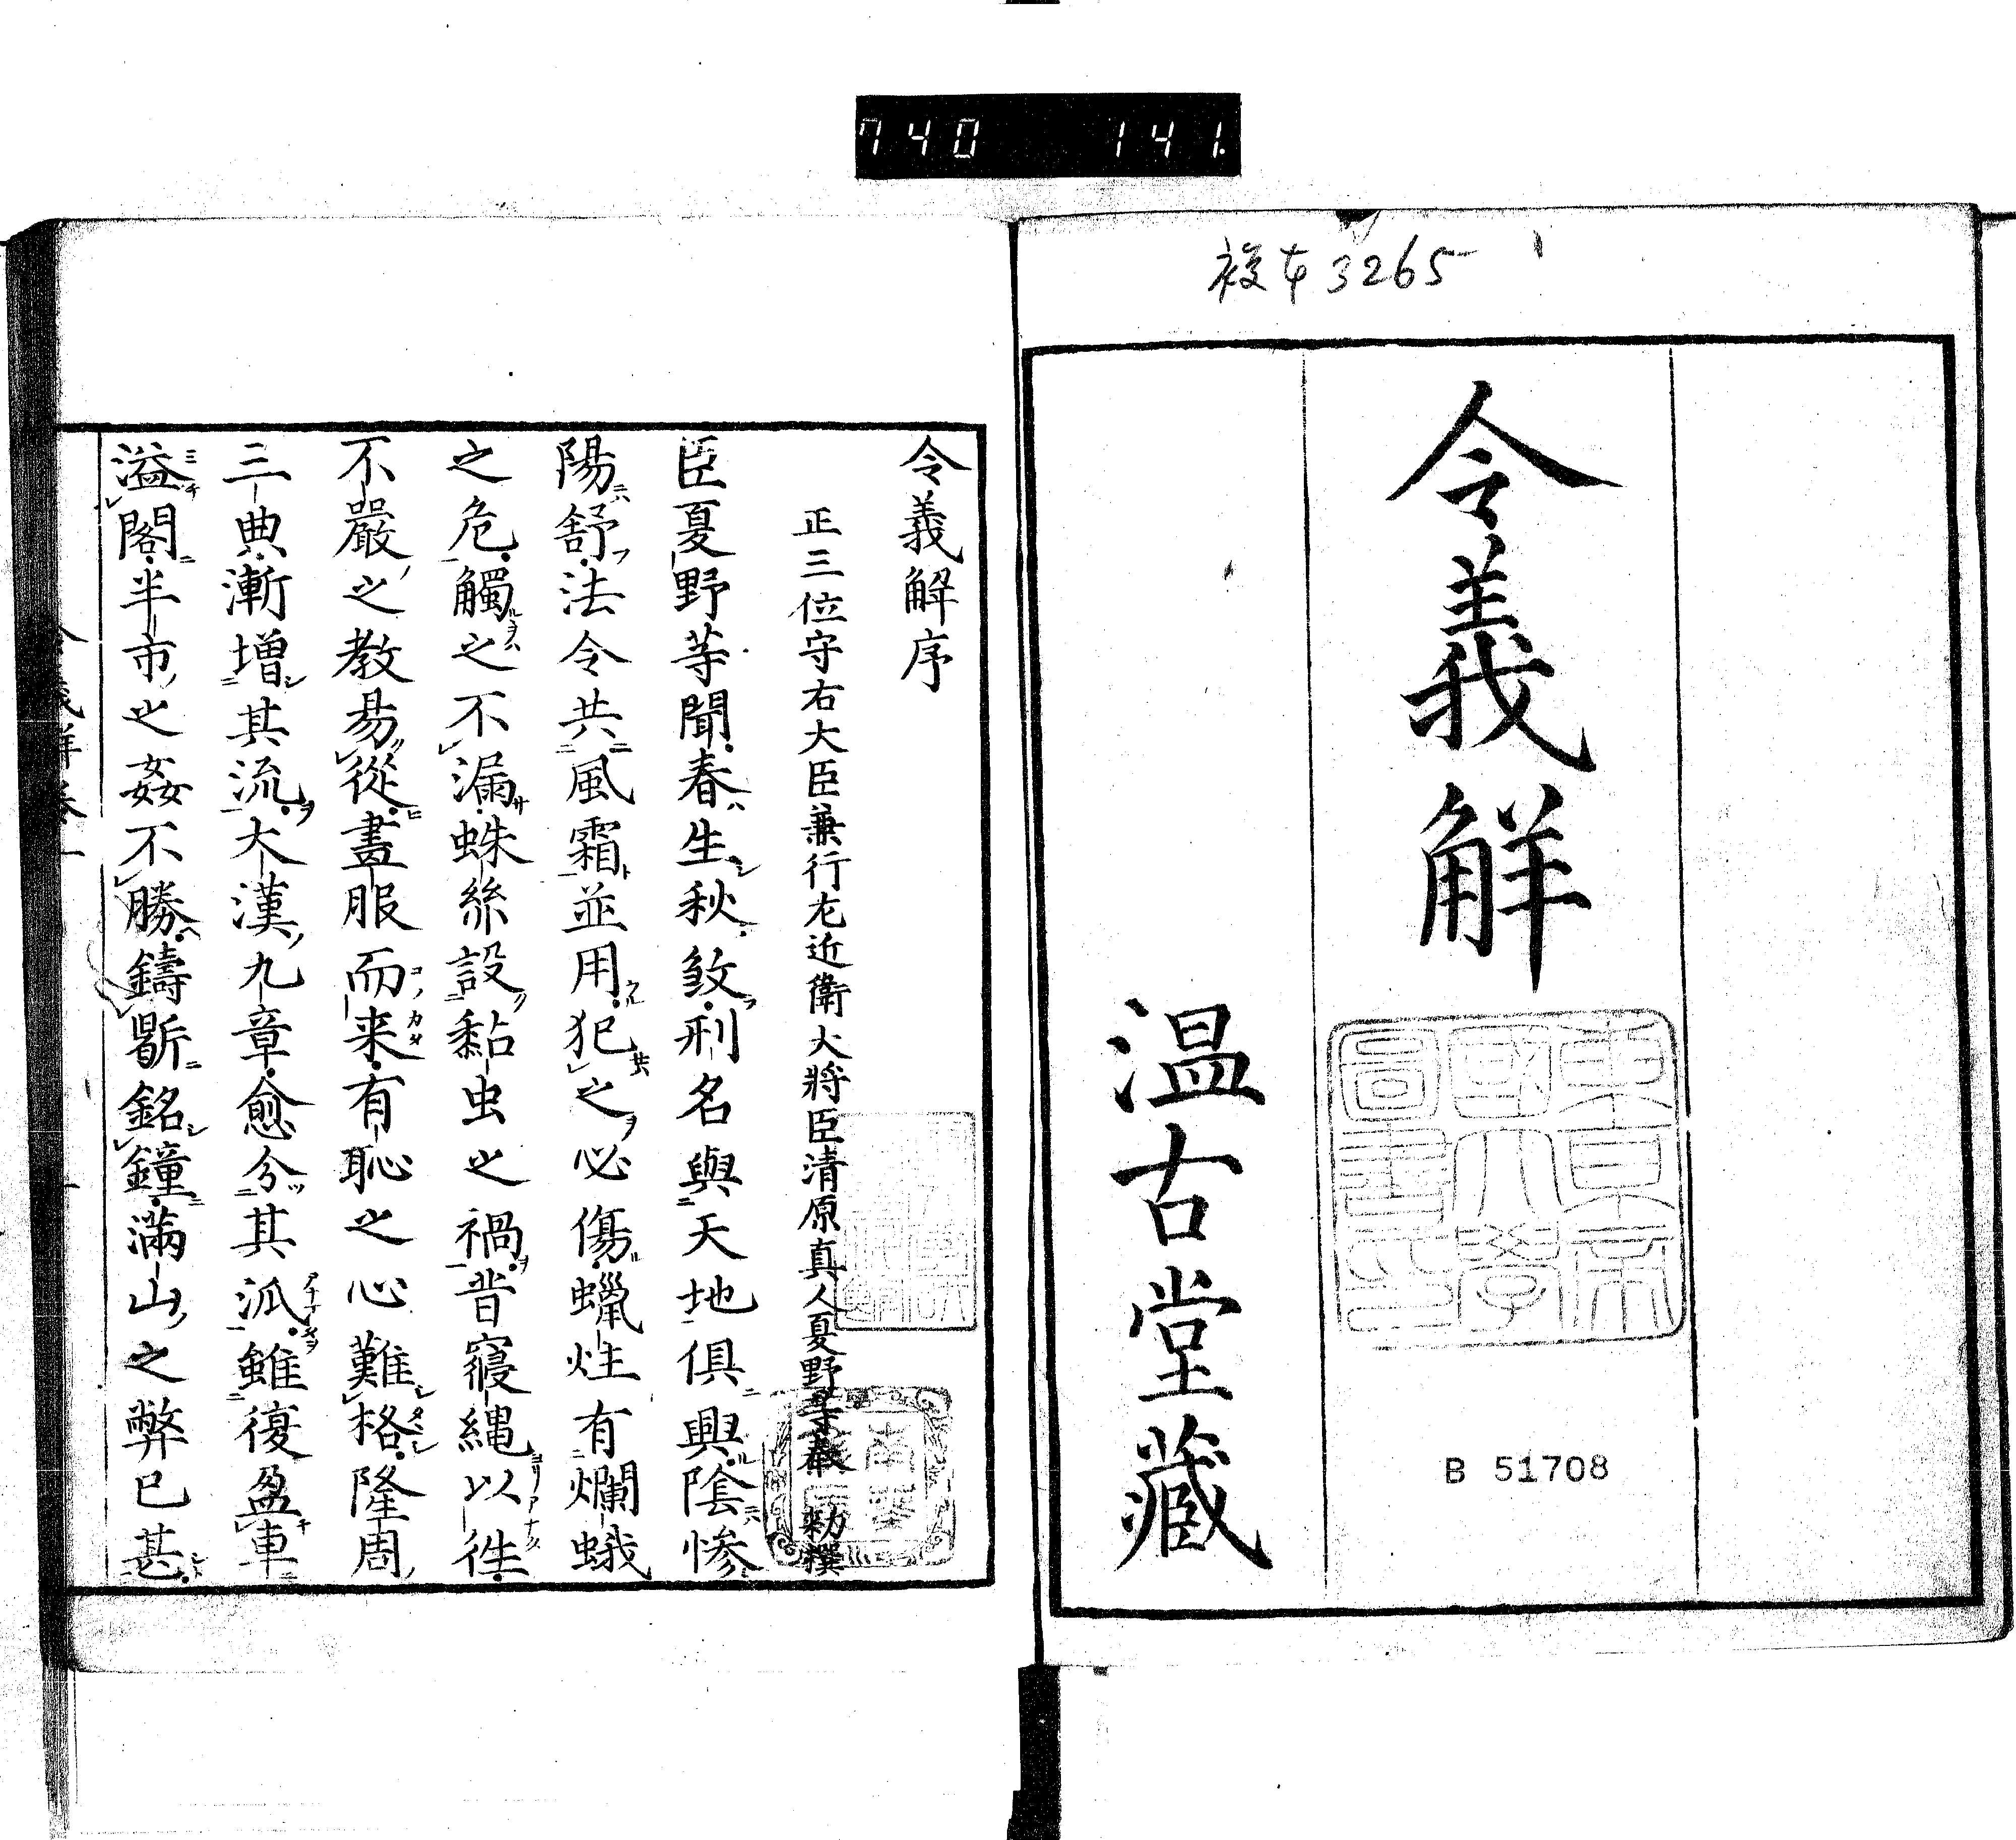 740 141.
複本3265
令義解
温古堂藏
東京帝
國大學
圖書印
B 51708
令義解序
正三位守右大臣兼行左近衛大將臣清原真人夏野等奉 勅撰
臣夏野等聞春生秋敛刑名與天地俱興陰惨
陽舒法令共風霜並用犯之必傷蠟炷有爛蛾
之危觸之不漏蛛絲設黏虫之禍昔寢繩以徃
不嚴之教易從畫服而来有恥之心難格隆周
三典漸增其流大漢九章愈分其派雖復盈車
溢閣半市之姦不勝鑄鼎銘鐘滿山之弊已甚